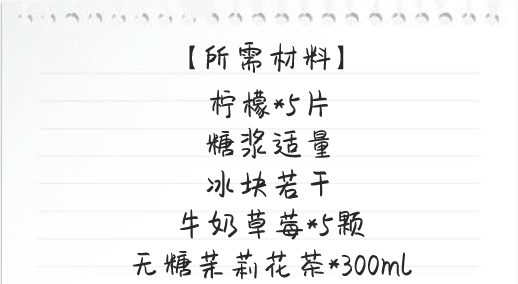 【所需材料】
柠檬*5片
糖浆适量
冰块若干
牛奶草莓*5颗
无糖茉莉花茶*300ml